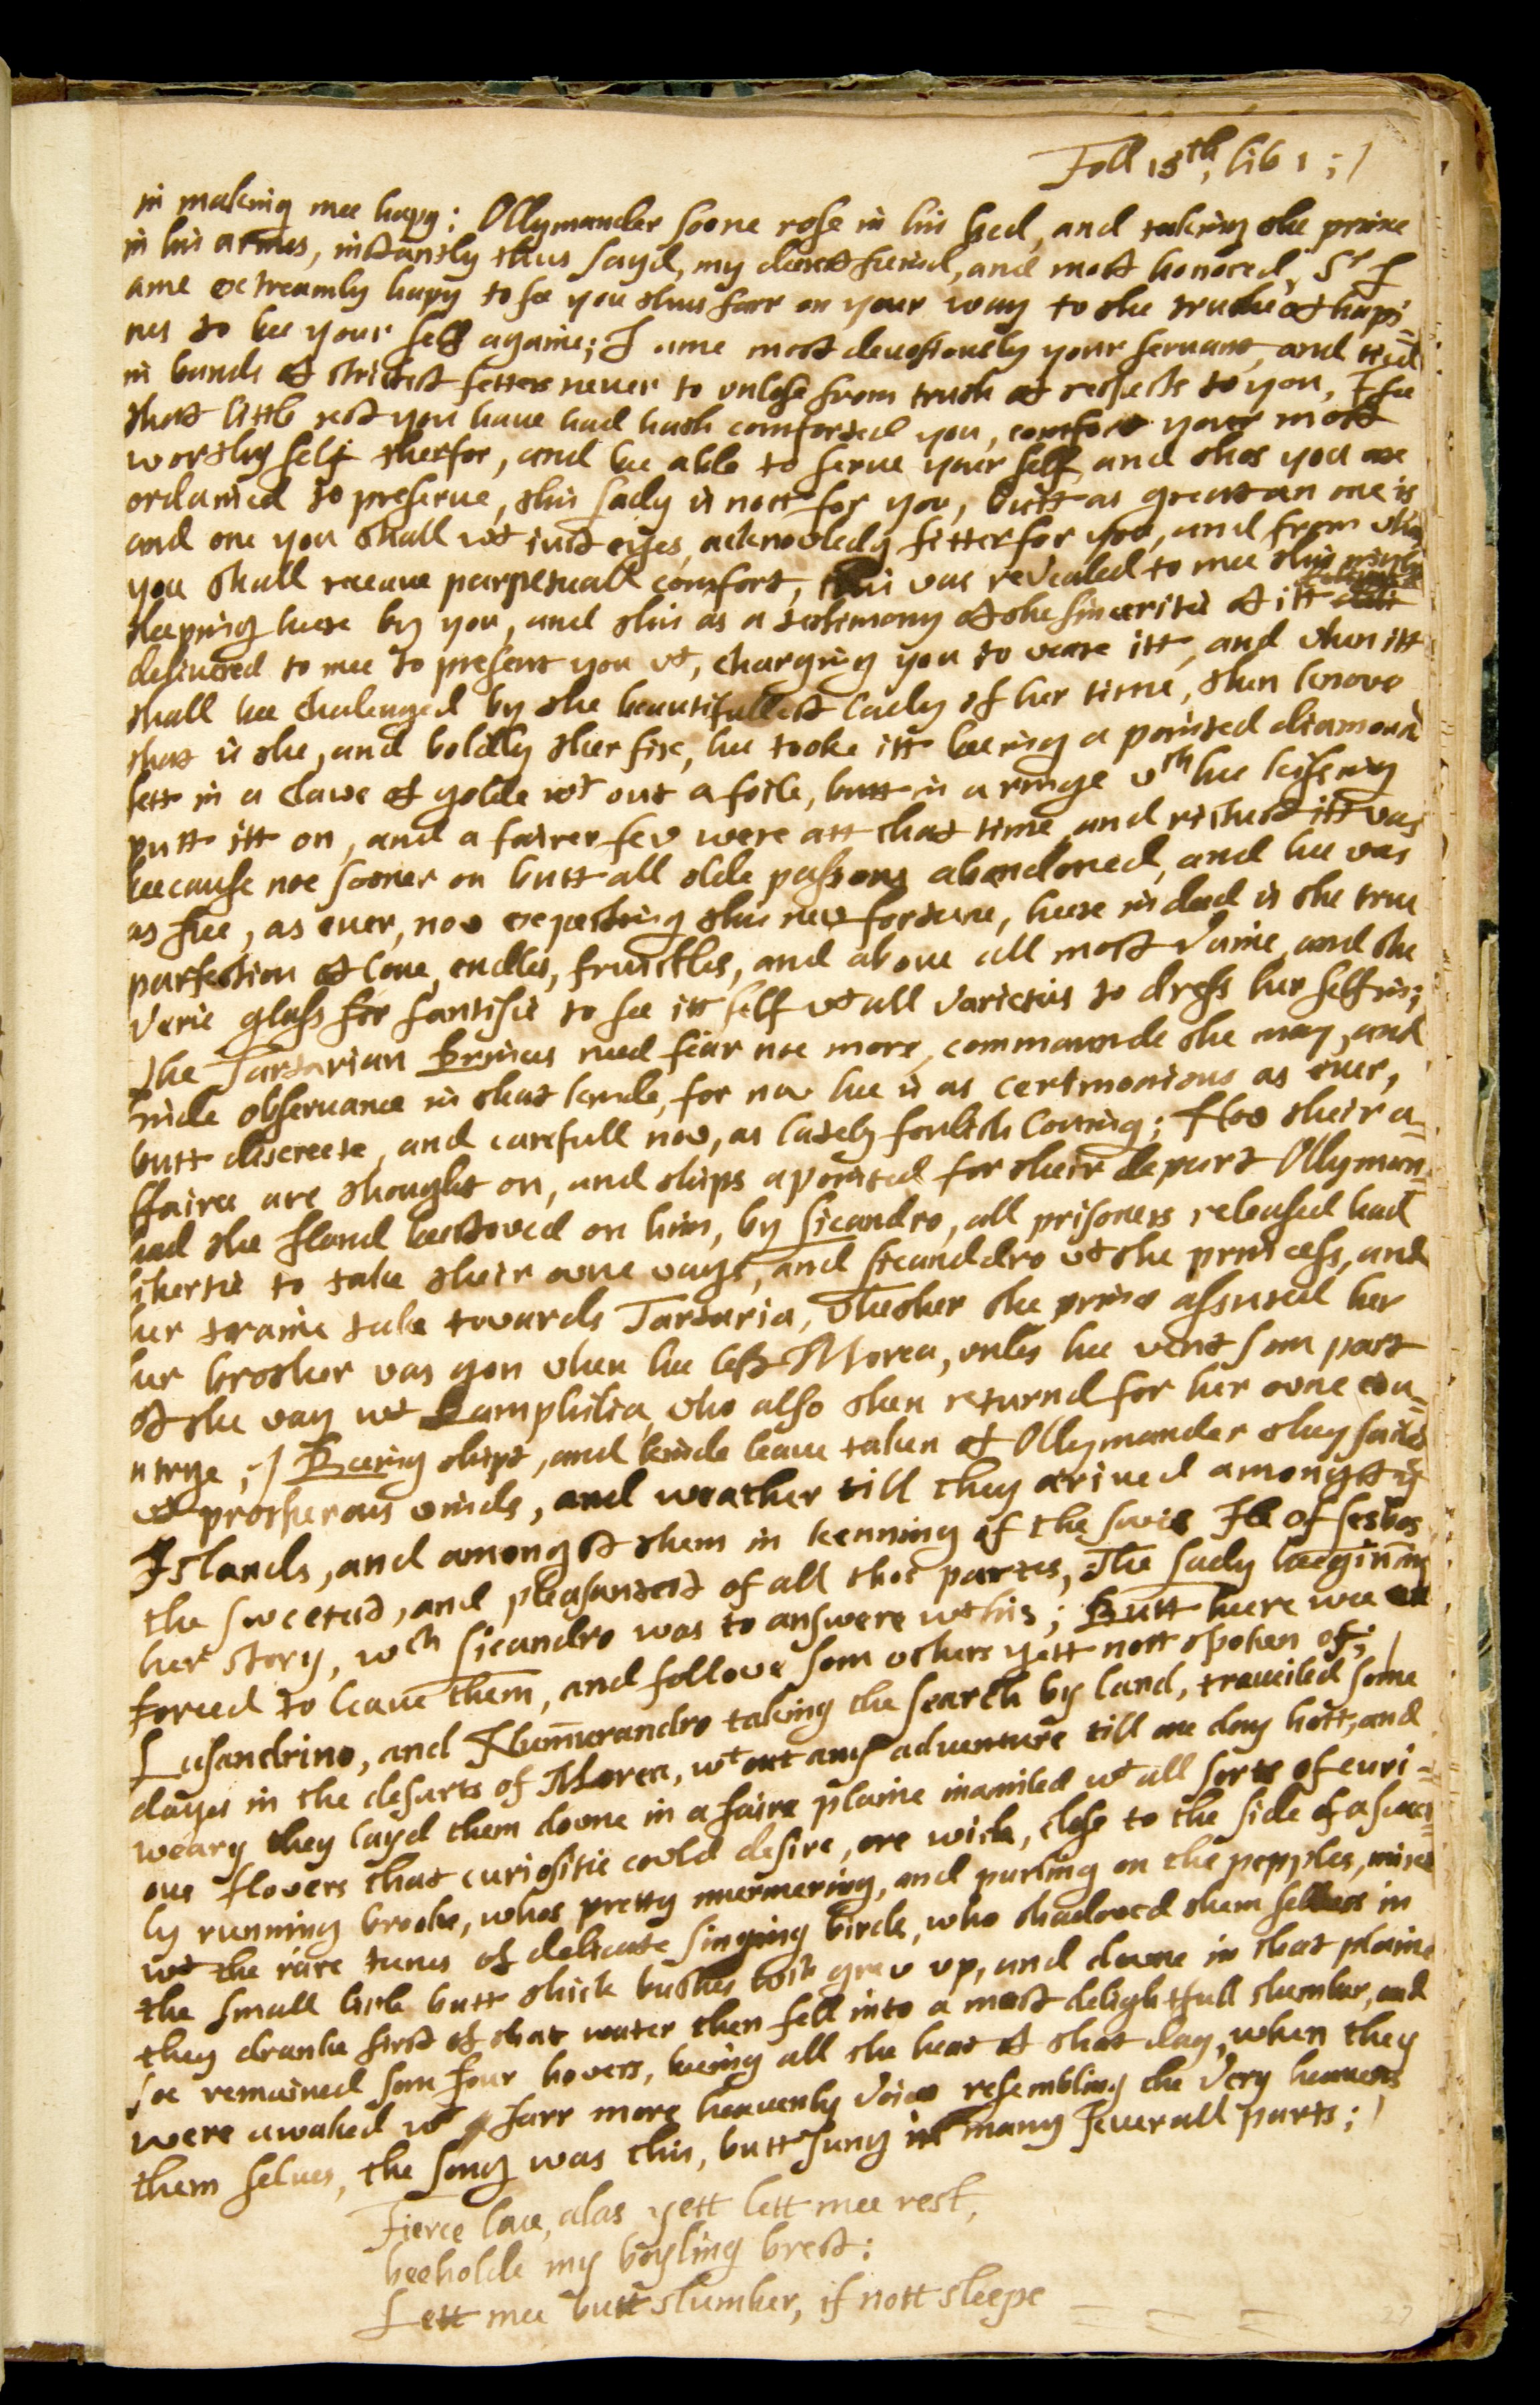 Foll 15th, lib 1 ; /
in making mee hapy: Ollymander soone rose in his bed, and taking the prince
in his armes, instantly thus sayd, my deerest friend, and most honored, Sr I
ame extreamly hapy to see you thus farr on your way to the truthe of hapi=
nes to bee your self againe; I ame most devotionely your servant, and tied
in bands of strictest fetters never to unlose from truth of respects to you, I see
that little rest you have had hath comforted you, comfort your most
worthy self therfor, and bee able to serve your self and thos you are
ordained to preserve, this lady is nott for you, butt as great an one is
and one you shall wt just eyes, acknowledg fitter for you, and from whom
you shall receave perpetuall comfort, this was revealed to mee this night
sleeping heere by you, and this as a testimony of the sinceritie of itt
delivered to mee to present you wt, charging you to weare itt, and when itt
shall bee chalenged by the beautifullest lady of her time, then knowe
that is she, and boldly ther fix, hee tooke itt beeing a pointed diamond
sett in a clawe of golde wt out a foile, butt in a ringe wch hee kissing
putt itt on, and a fairer few were att that time, and richest itt was
beecause noe sooner on butt all olde passions abandoned, and hee was
as free, as ever, now expecting this new fortune, heere indeed is the true
parfection of love, endles, fruictles, and above all most vaine, and the
verie glass for fantisie to see itt self wt all varieties to dress her self in;
The Tartarian Princess need fear noe more, commaunde she may, and
finde observance in that kinde, for now hee is as cerimonious as ever,
butt discreete, and carefull now, as lately foolish loving; How their a=
ffaires are thought on, and ships apointed for their depart Ollyman=
had the Iland bestowed on him, by licandro, all prisoners released had
libertie to take their owne ways, and licanddro wt the princess, and
her traine take towards Tartaria, whether the prince assured her
her brother was gon when hee left Morea, unles hee went som part
of the way wt Pamphilia, who also then returnd for her owne cou=
ntrye ; / Beeing shipt, and kinde leave taken of Ollymander they sailed
wt prosperous winds, and weather till they arived amongst ye
Islands, and amongst them in kenning of the swit Ile of lesbos
the sweetest, and pleasantest of all thos partes, The lady beeginning
her story, wch licandro was to answere wt his ; Butt heere wee ar
forced to leave them, and followe som others yett nott spoken of; /
Lusandrino, and Nummurandro taking the search by land, traviled some
dayes in the desarts of Morea, wt out any adventure till one day hott, and
weary they layd them downe in a faire plaine inamiled wt all sorts of curi=
ous flowers that curiositie could desire, ore wish, close to the side of a swee=
ly running brooke, whos pretty murmering, and purling on the pepples, mixed
wt the rare tunes of delicate singing birds, who shadowed them selves in
the small litle butt thick bushes wch grew up, and downe in that plaine
they dranke first of that water then fell into a most delightfull slumber, and
soe remained som four howers, beeing all the heat of that day, when they
were awaked wt farr more heavenly voices resembling the very heavens
them selves, the song was this, butt sung in many severall parts; /
Fierce love, alas yett lett mee rest,
beeholde my boyling brest;
Lett mee butt slumber, if nott sleepe
27